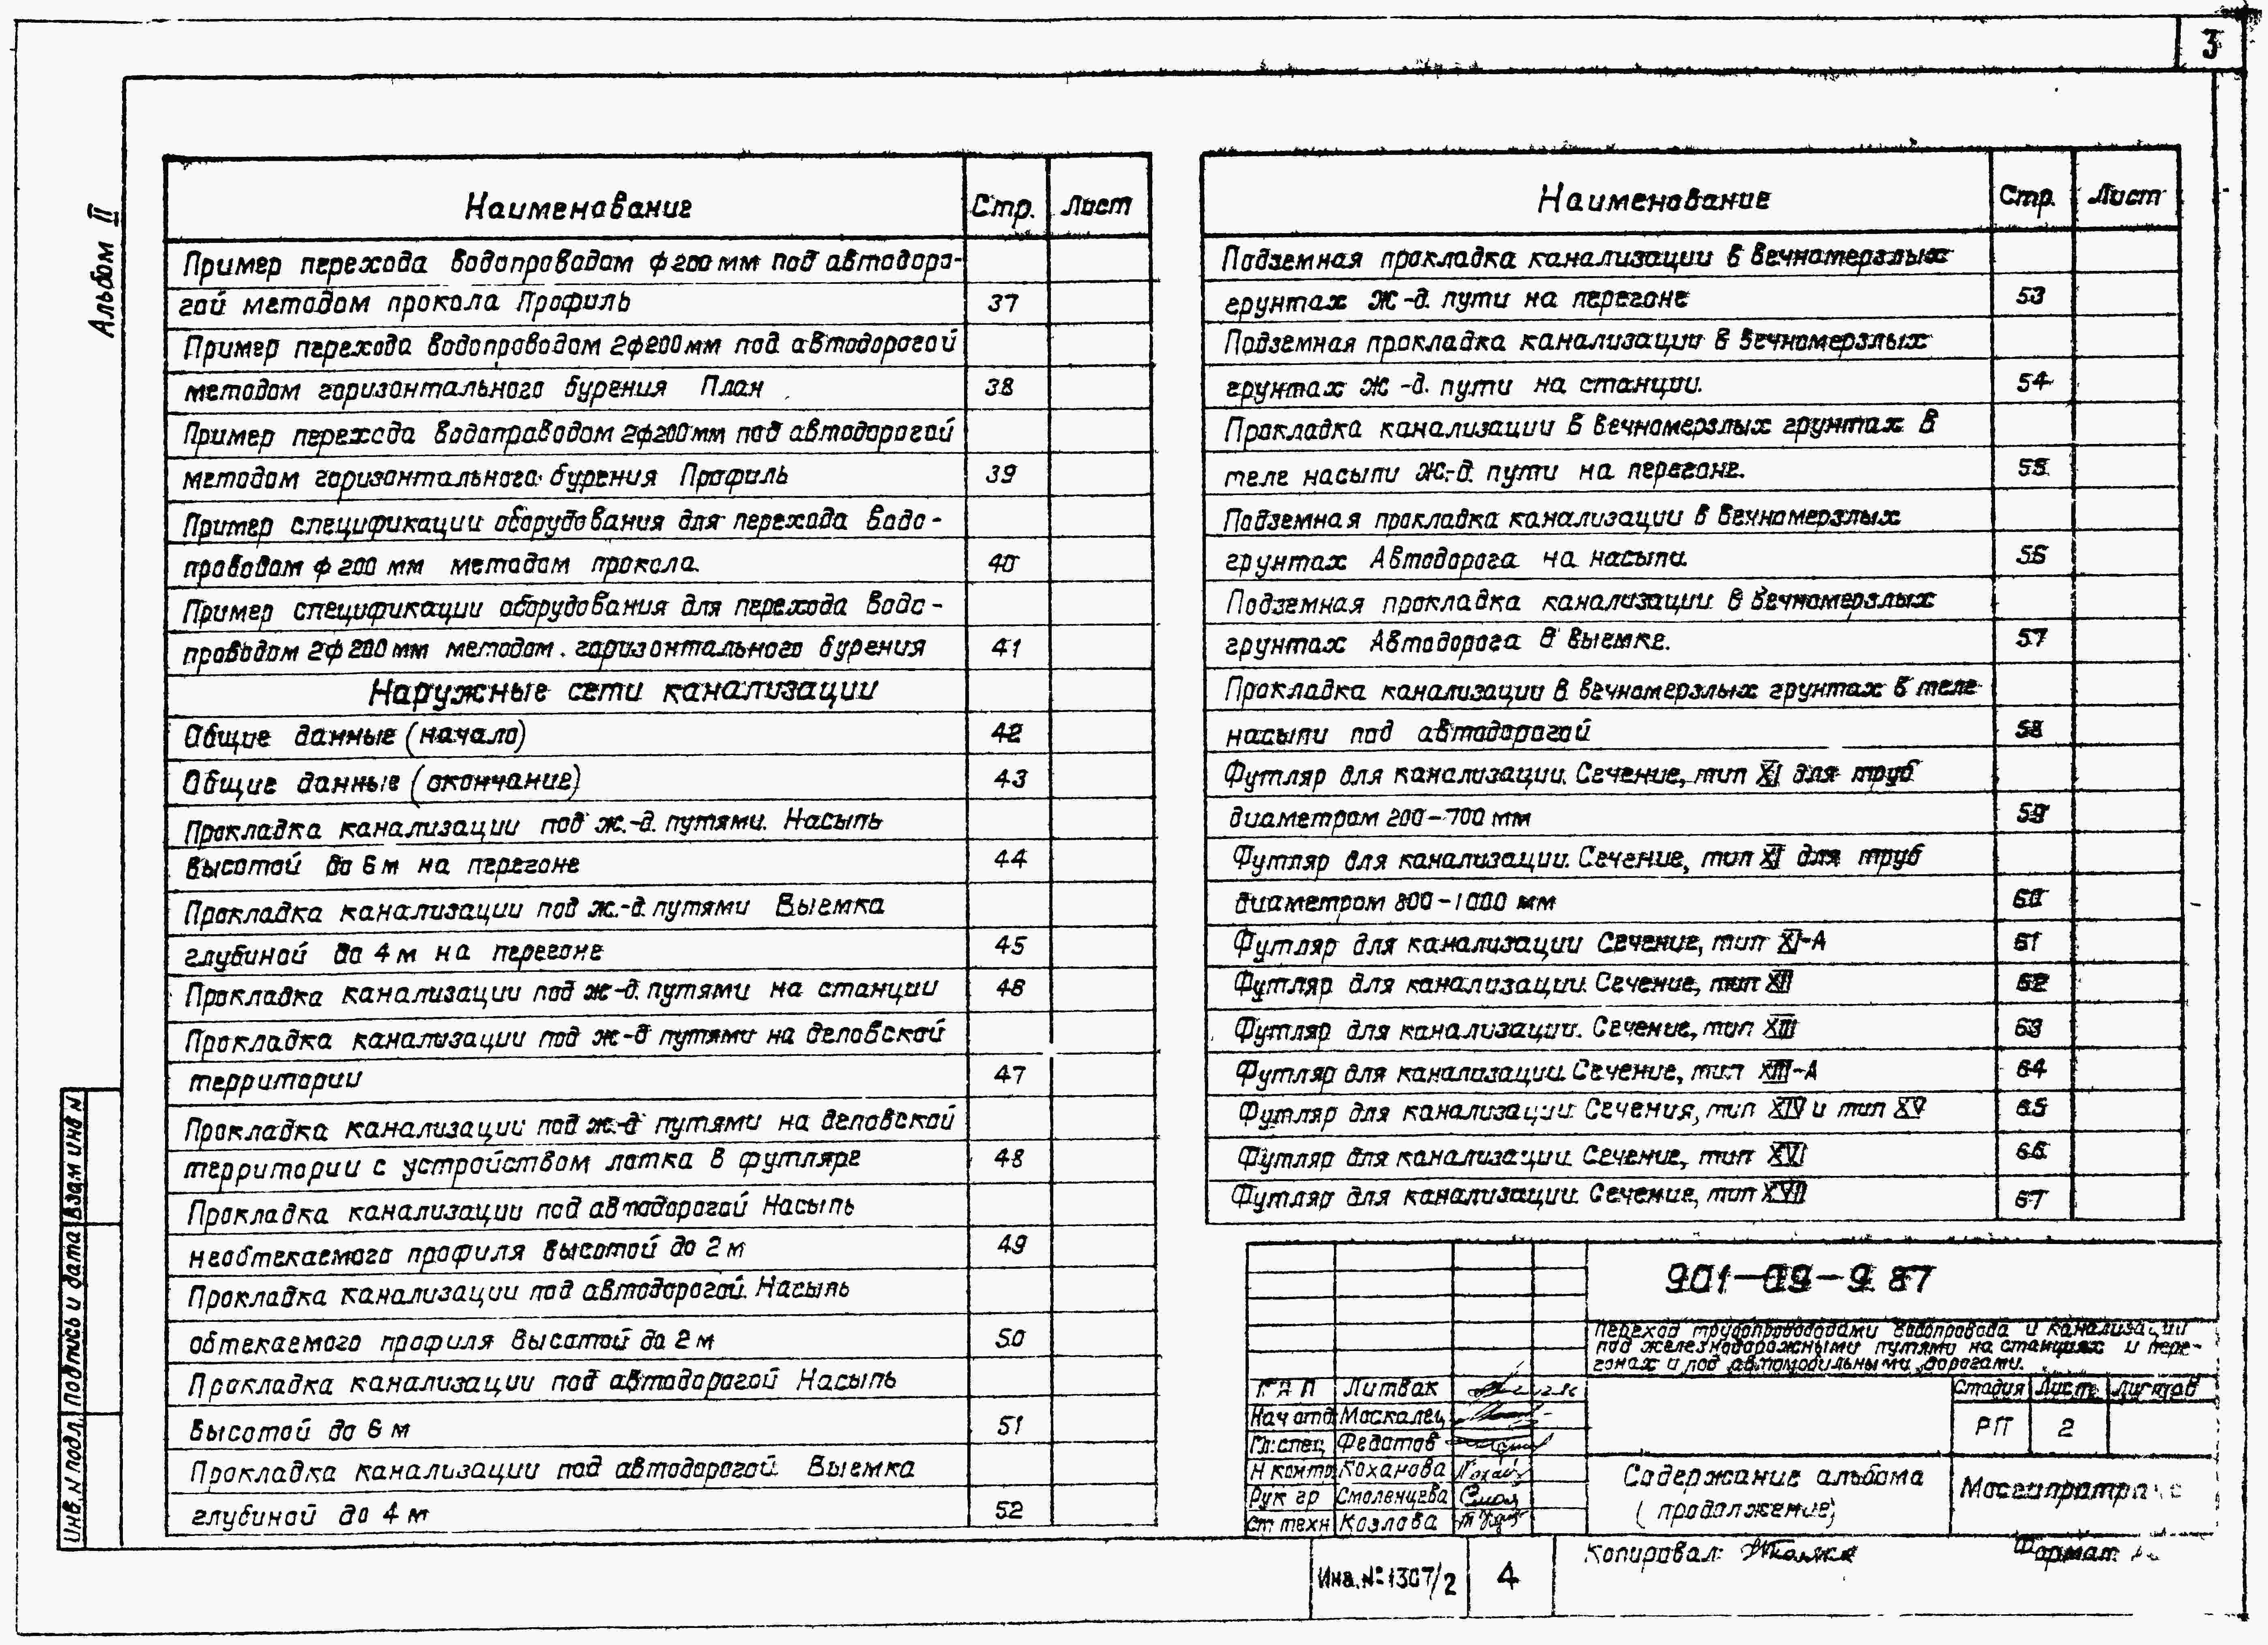 3
Альбом II
Наименование Стр. Лист
Пример перехода водопроводом ф 200 мм под автодоро-
гой методом прокола Профиль 37
Пример перехода водопроводом 2ф200мм под автодорогой
методом горизонтального бурения План 38
Пример перехода водопроводом 2ф200мм под автодорогой
методом горизонтального бурения Профиль 39
Пример спецификации оборудования для перехода водо-
проводом ф 200 мм методом прокола. 40
Пример спецификации оборудования для перехода водо-
проводом 2ф 200 мм методом. горизонтального бурения 41
Наружные сети канализации
Общие данные (начало) 42
Общие данные (окончание) 43
Прокладка канализации под ж.-д. путями. Насыпь
высотой до 6 м на перегоне 44
Прокладка канализации под ж.-д. путями Выемка
глубиной до 4 м на перегоне 45
Прокладка канализации под ж-д. путями на станции 46
Прокладка канализации под ж-д путями на деповской
территории 47
Прокладка канализации под ж.-д путями на деповской
территории с устройством лотка в футляре 48
Прокладка канализации под автодорогой Насыпь
необтекаемого профиля высотой до 2 м 49
Прокладка канализации под автодорогой. Насыпь
обтекаемого профиля высотой до 2 м 50
Прокладка канализации под автодорогой Насыпь
высотой до 6 м 51
Прокладка канализации под автодорогой Выемка
глубиной до 4 м 52
Наименование Стр. Лист
Подземная прокладка канализации в вечномерзлых
грунтах ж-д. пути на перегоне 53
Подземная прокладка канализации в вечномерзлых
грунтах ж-д. пути на станции. 54
Прокладка канализации в вечномерзлых грунтах в
теле насыпи ж.-д. пути на перегоне. 55
Подземная прокладка канализации в вечномерзлых
грунтах Автодорога на насыпи. 56
Подземная прокладка канализации в вечномерзлых
грунтах Автодорога в выемке. 57
Прокладка канализации в вечномерзлых грунтах в теле
насыпи под автодорогой 58
Футляр для канализации. Сечение, тип XI для труб
диаметром 200-700 мм 59
Футляр для канализации. Сечение, тип XI для труб
диаметром 800-1000 мм 60
Футляр для канализации Сечение, тип XI-А 61
Футляр для канализации. Сечение, тип XII 62
Футляр для канализации. Сечение, тип XIII 63
Футляр для канализации. Сечение, тип XIII-А 64
Футляр для канализации Сечения, тип XIV и тип XV 65
Футляр для канализации. Сечение, тип XVI 66
Футляр для канализации. Сечение, тип XVII 67
901-09-9.87
Переход трубопроводами водопровода и канализации
под железнодорожными путями на станциях и пере-
гонах и под автомобильными дорогами.
ГАП Литвак
Нач отд Москалец
Гл.спец Федотов
Н контр Коханова
Рук гр Смоленцева
Ст техн Козлова
Стадия Лист Листов
РП 2
Содержание альбома
(продолжение)
Мосгипротранс
Инв. № 1307/2 4
Копировал:
Формат
Инв. N подл. Подпись и дата Взам инв N